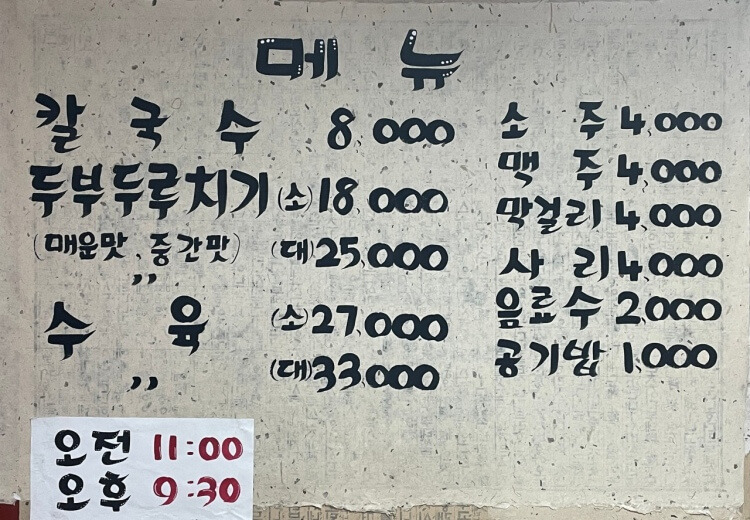 메 뉴
칼 국 수 8,000
두부두루치기 (소)18,000
(매운맛, 중간맛) (대)25,000
,,
수 육 (소)27,000
,, (대)33,000
소 주 4,000
맥 주 4,000
막걸리 4,000
사 리 4,000
음료수 2,000
공기밥 1,000
오전 11:00
오후 9:30